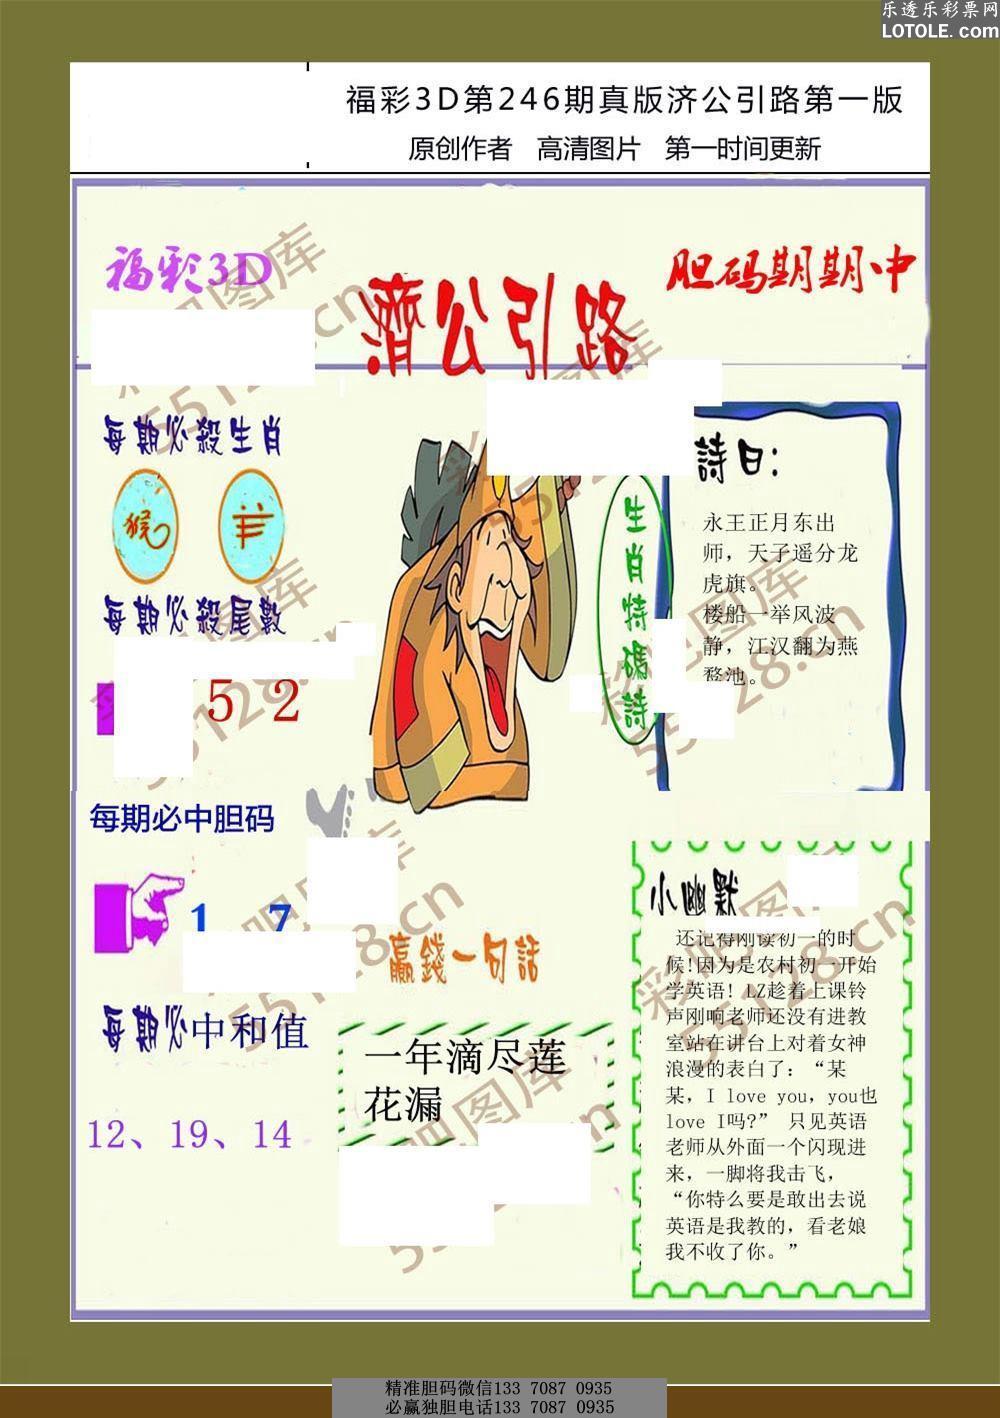 乐透乐彩票网
LOTOLE.com
福彩3D第246期真版济公引路第一版
原创作者 高清图片 第一时间更新
福彩3D
濟公引路
胆码期期中
每期必殺生肖
猴 羊
每期必殺尾數
5 2
每期必中胆码
1 7
每期必中和值
12、19、14
生肖特碼詩
詩曰:
永王正月东出
师，天子遥分龙
虎旗。
楼船一举风波
静，江汉翻为燕
鹜池。
赢錢一句話
一年滴尽莲
花漏
小幽默
还记得刚读初一的时
候!因为是农村初一开始
学英语! LZ趁着上课铃
声刚响老师还没有进教
室站在讲台上对着女神
浪漫的表白了：“某
某，I love you，you也
love I吗?” 只见英语
老师从外面一个闪现进
来，一脚将我击飞，
“你特么要是敢出去说
英语是我教的，看老娘
我不收了你。”
彩吧图库
55128.cn
精准胆码微信133 7087 0935
必赢独胆电话133 7087 0935